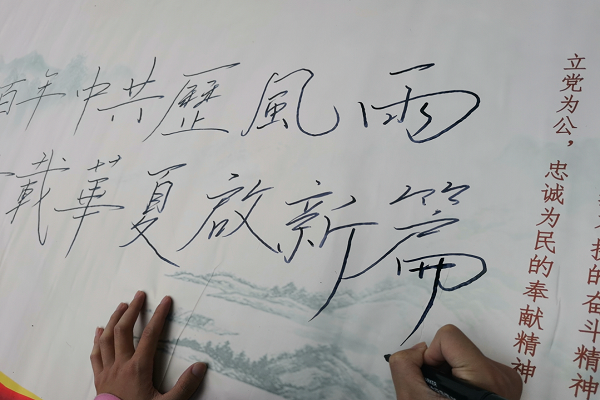 百年中共歷風雨
載華夏啟新篇
立党为公，忠诚为民的奉献精神
的奋斗精神